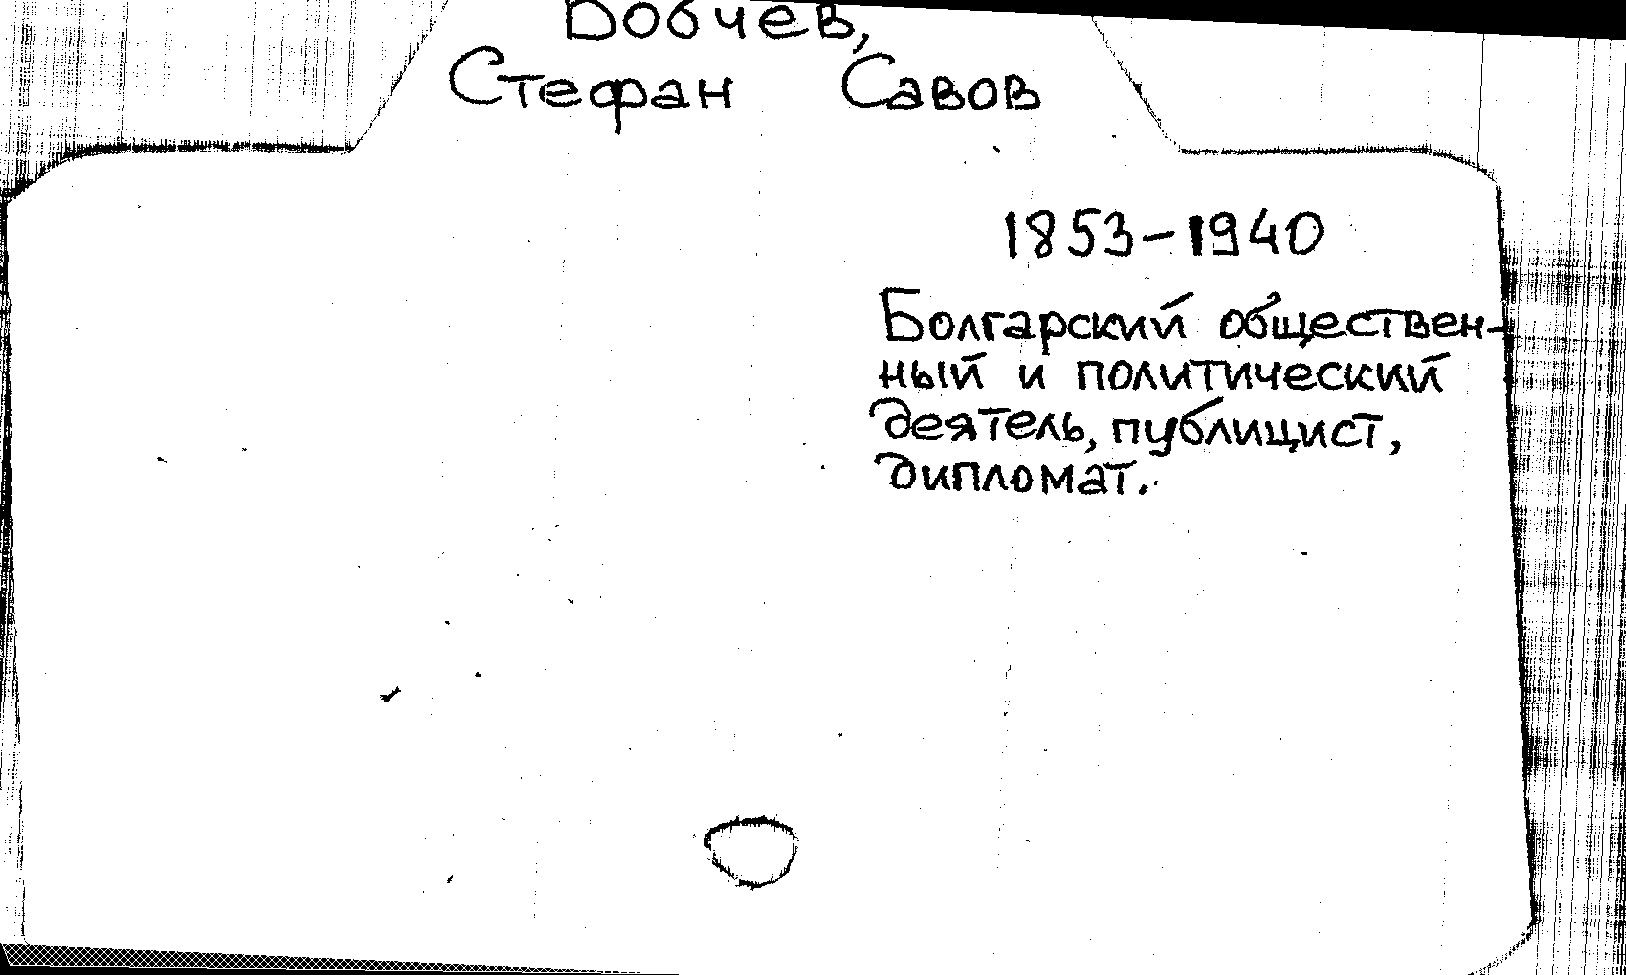 Бобчев,
Стефан Савов
1853-1940
Болгарский обществен-
ный и политический
деятель, публицист,
дипломат.